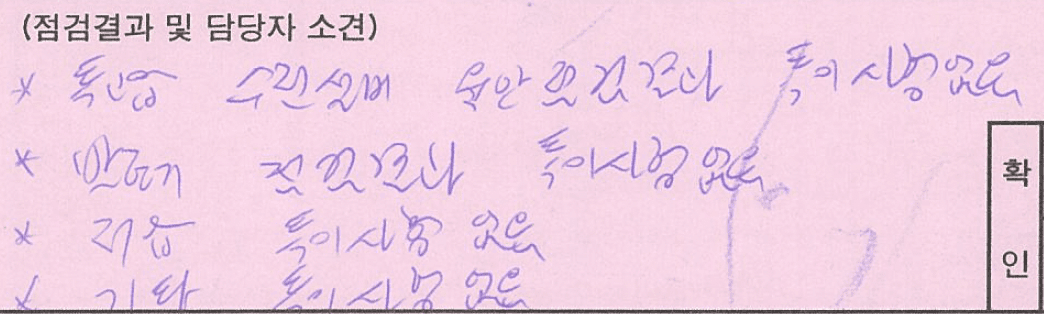 (점검결과 및 담당자 소견)
* 특고압 수전설비 육안점검결과 특이사항없음
* 발전기 점검결과 특이사항없음
* 저압 특이사항 없음
* 기타 특이사항 없음
확
인